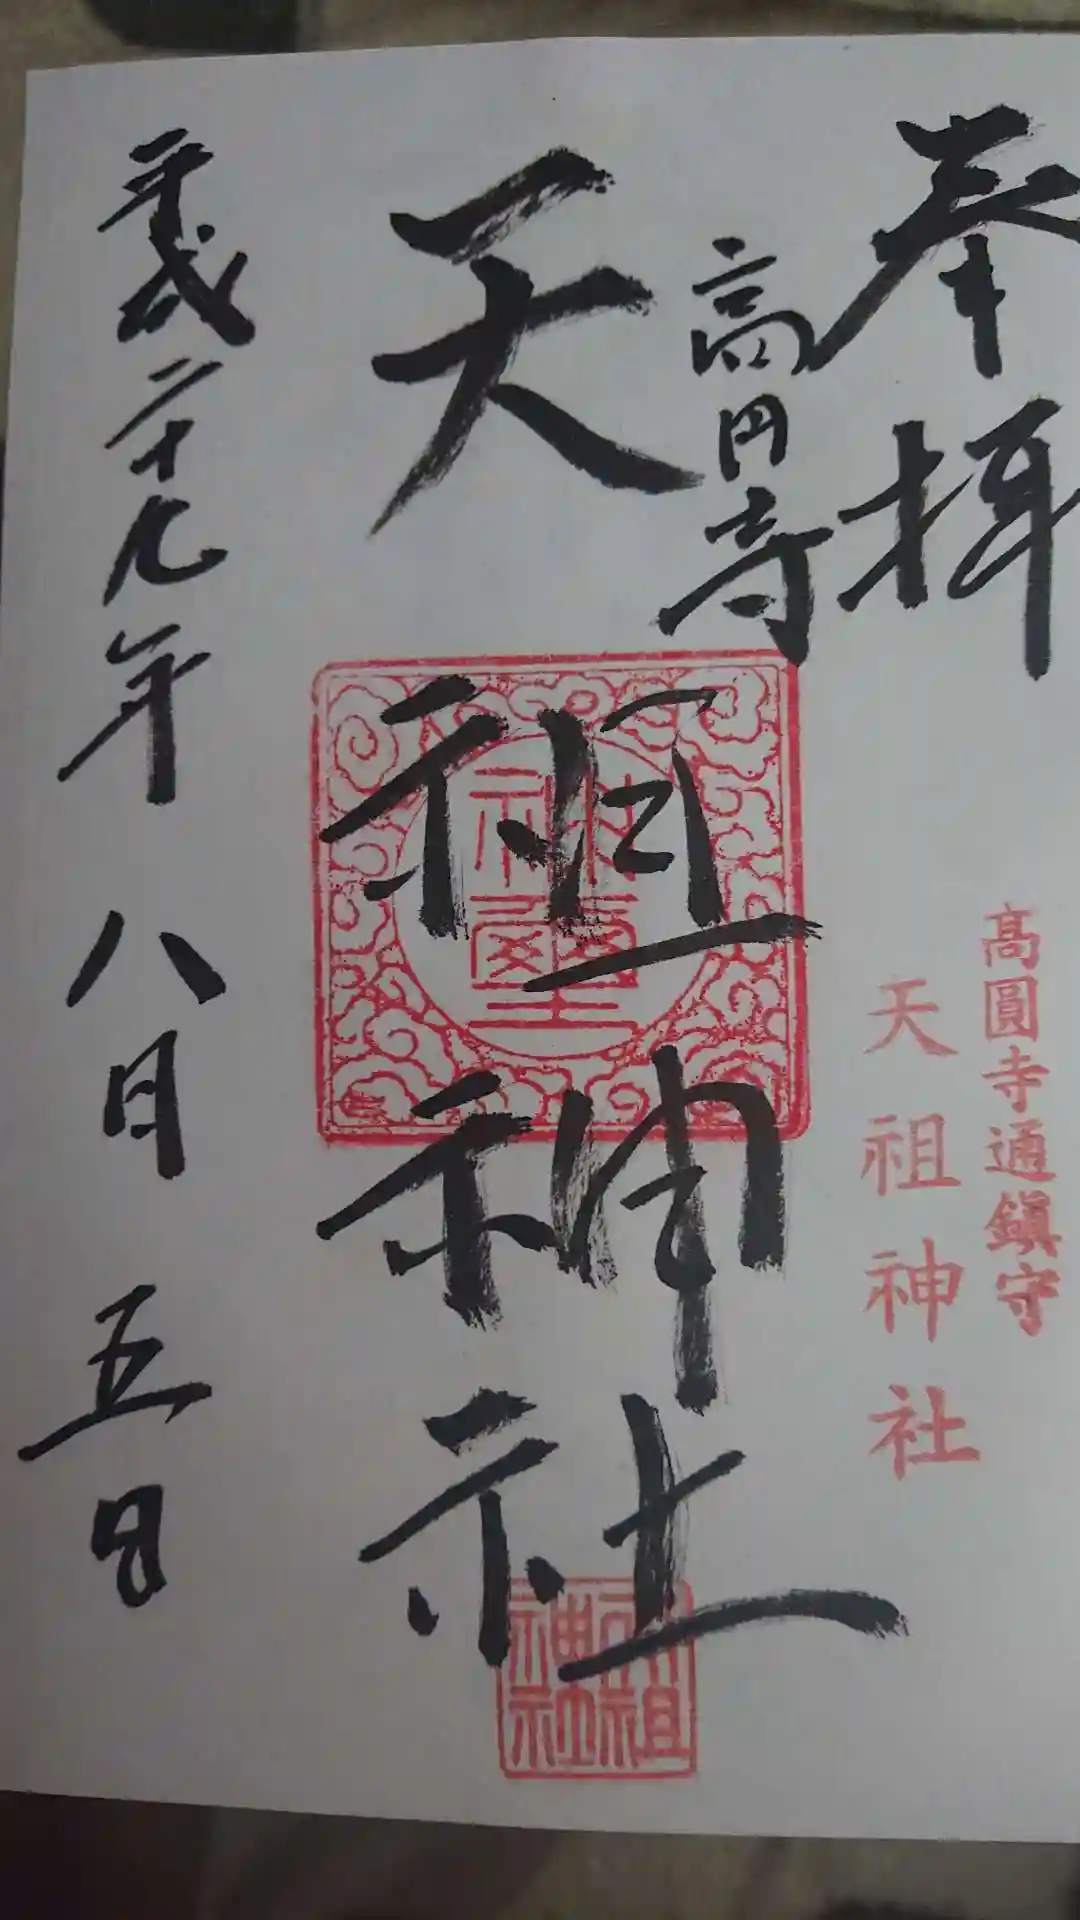 奉拝
高円寺
高圓寺通鎮守
天祖神社
天祖神社
天祖神社
平成二十九年八月五日